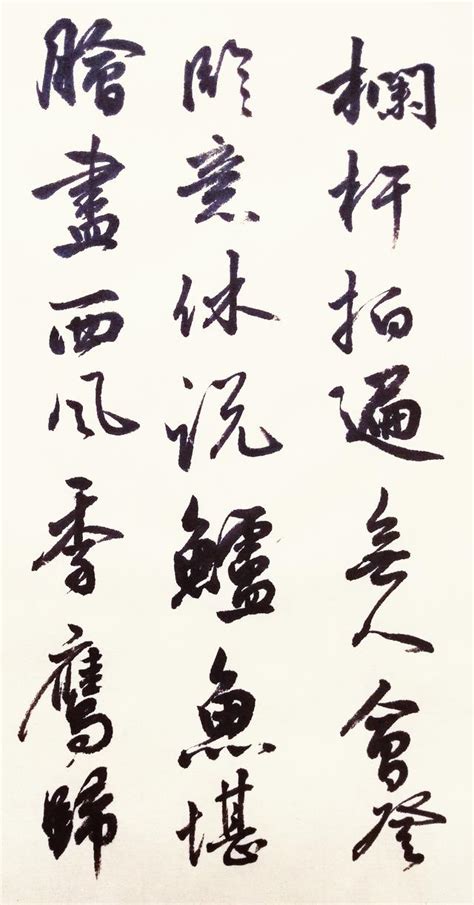 欄杆拍遍無人會登
臨意休說鱸魚堪
膾盡西風季鷹歸